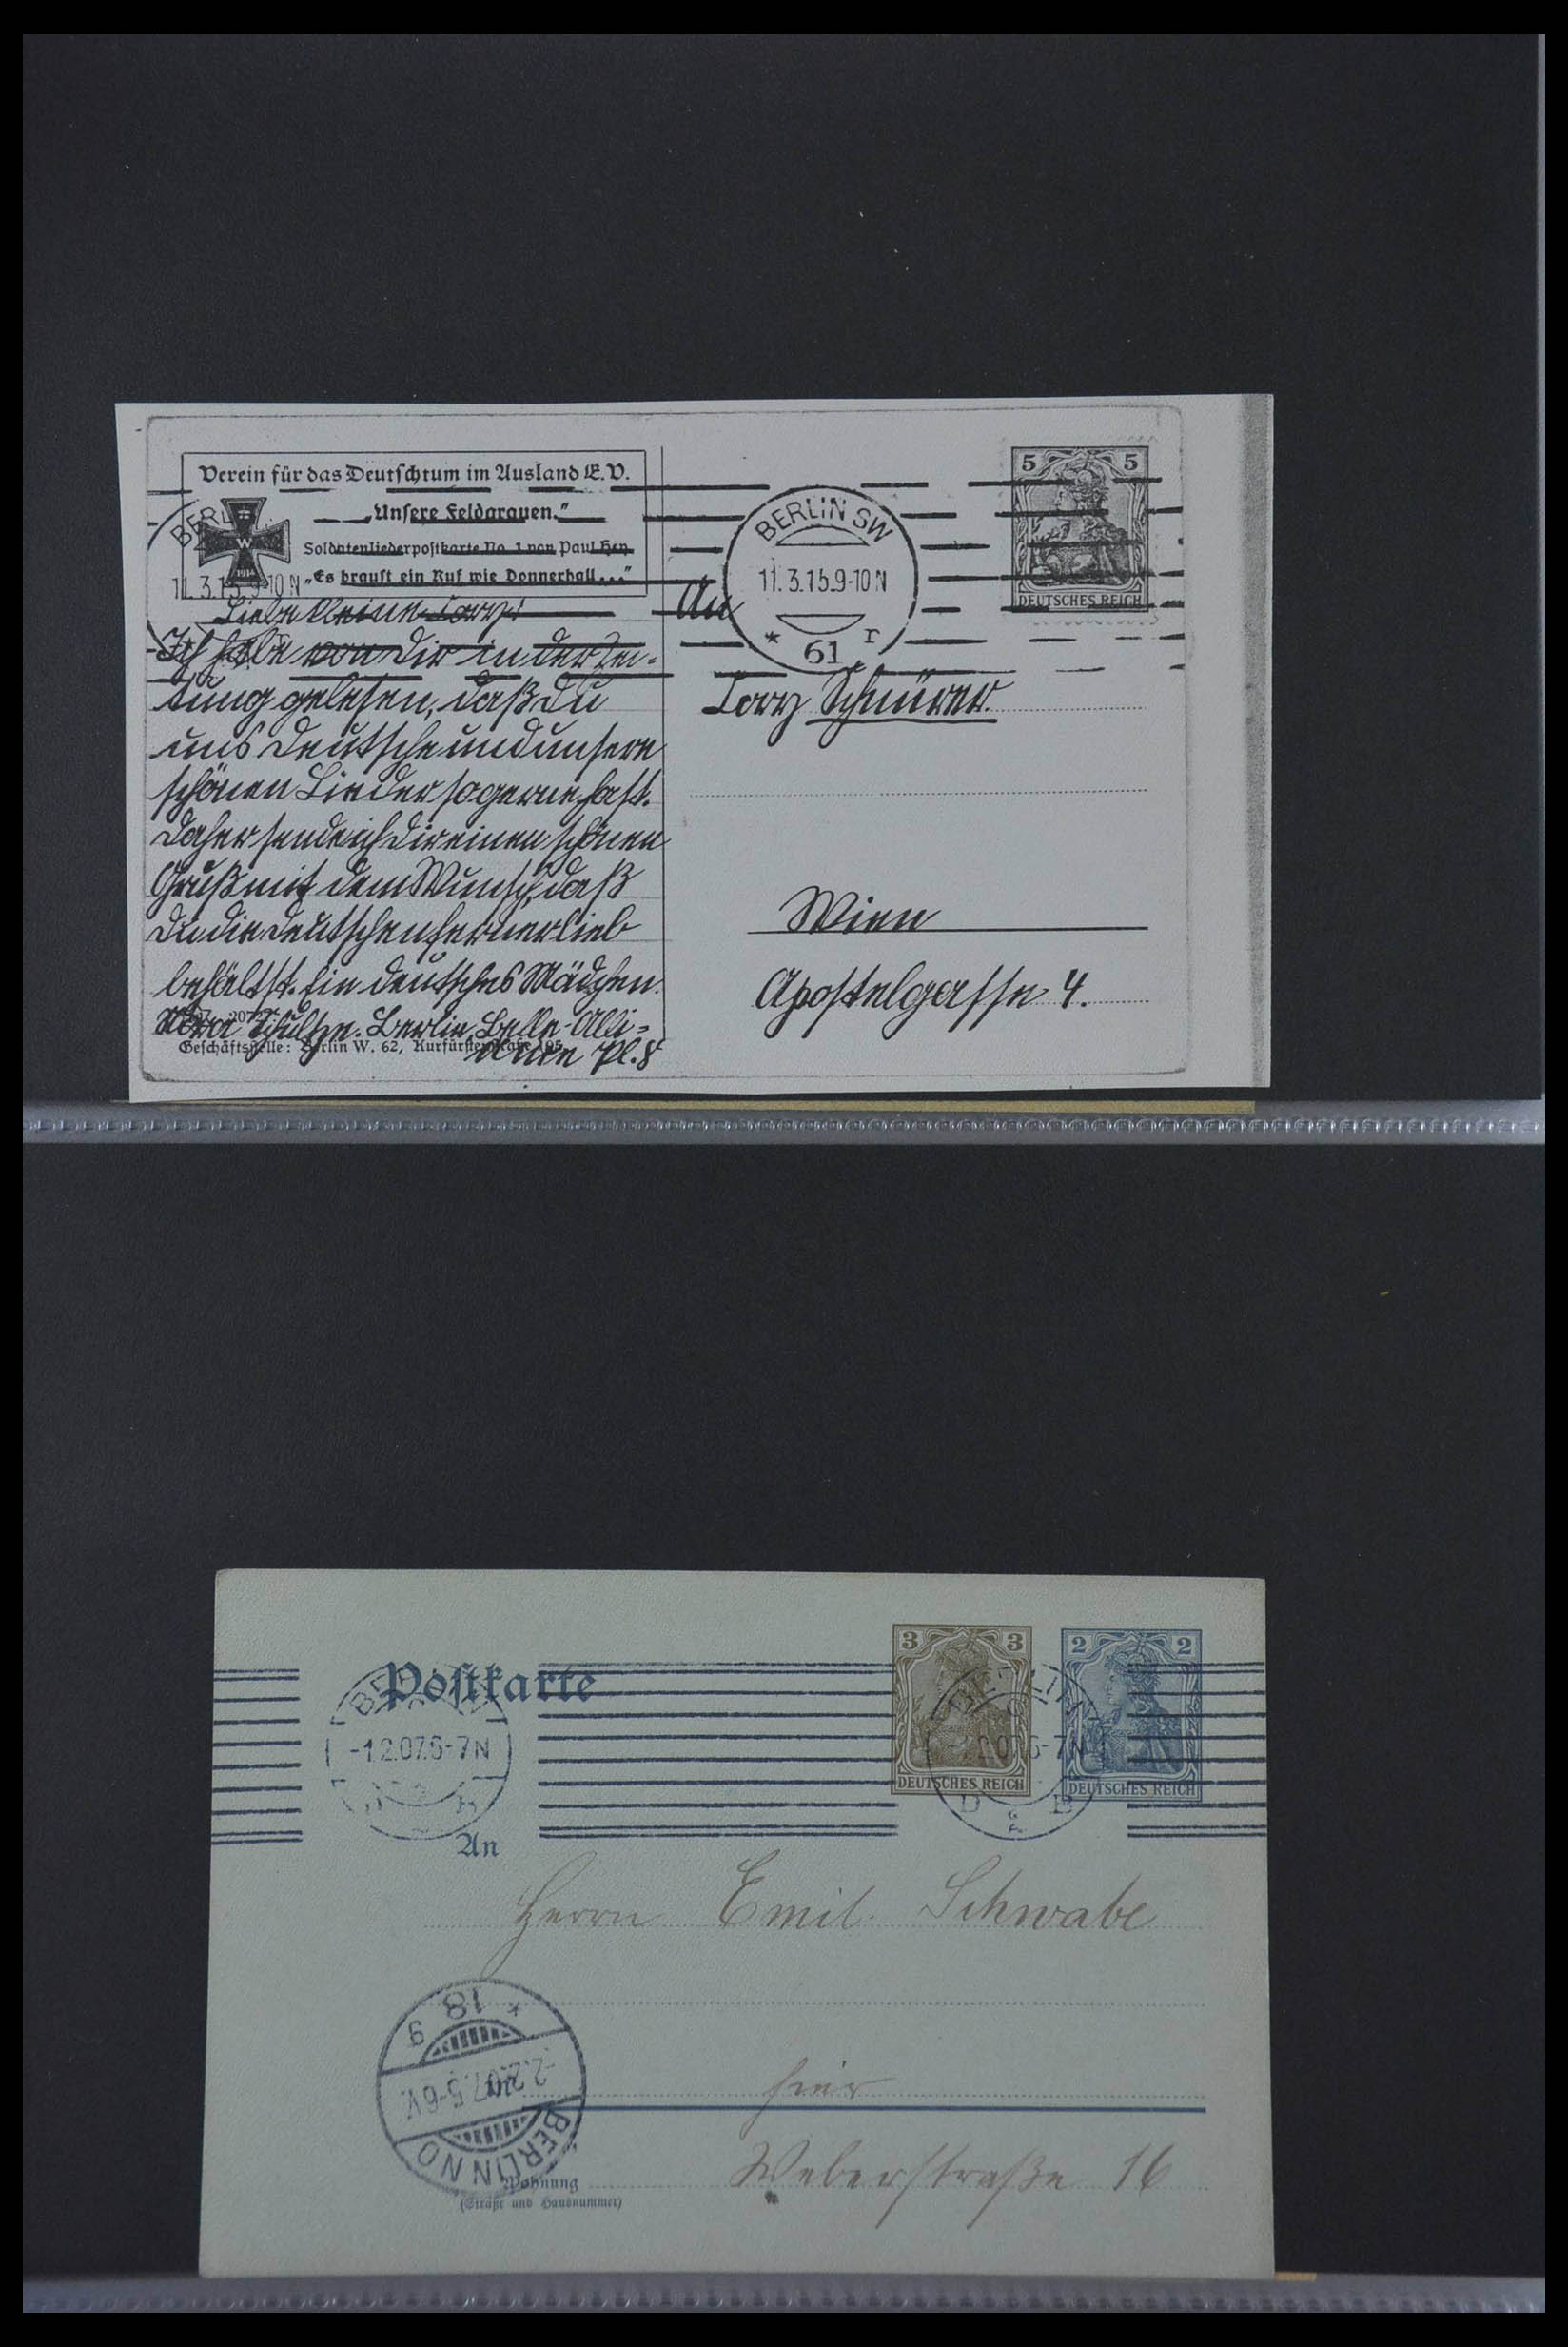 Verein für das Deutschtum im Ausland E.V.
„Unsere Feldgrauen."
Soldatenliederpostkarte No. 1 von Paul Hey
„Es braust ein Ruf wie Donnerhall..."
W
1914
BERLIN SW
11.3.15.9-10N
* 61 r
BERL
11.3.15.9-10N
5 5
DEUTSCHES REICH
Liebe kleine Lorry!
Ich habe von Dir in der Zei-
tung gelesen, daß Du
uns Deutsche und unsere
schönen Lieder so gerne hast.
Daher sende ich Dir einen schönen
Gruß mit dem Wunsch, daß
Du die Deutschen ferner lieb
behältst. Ein deutsches Mädchen.
Schultze. Berlin, Belle-Alli-
ance Pl. 8
Geschäftsstelle: Berlin W. 62, Kurfürstenstraße 105
An
Lorry Schnürer.
Wien
Apostelgasse 4.
Postkarte
3 3
DEUTSCHES REICH
2 2
DEUTSCHES REICH
-1.2.07.6-7N
An
Herrn Emil Schwabe
hier
Weberstraße 16
* 18 g
-2.2.07.5-6V.
BERLIN NO
in
Wohnung
(Straße und Hausnummer)